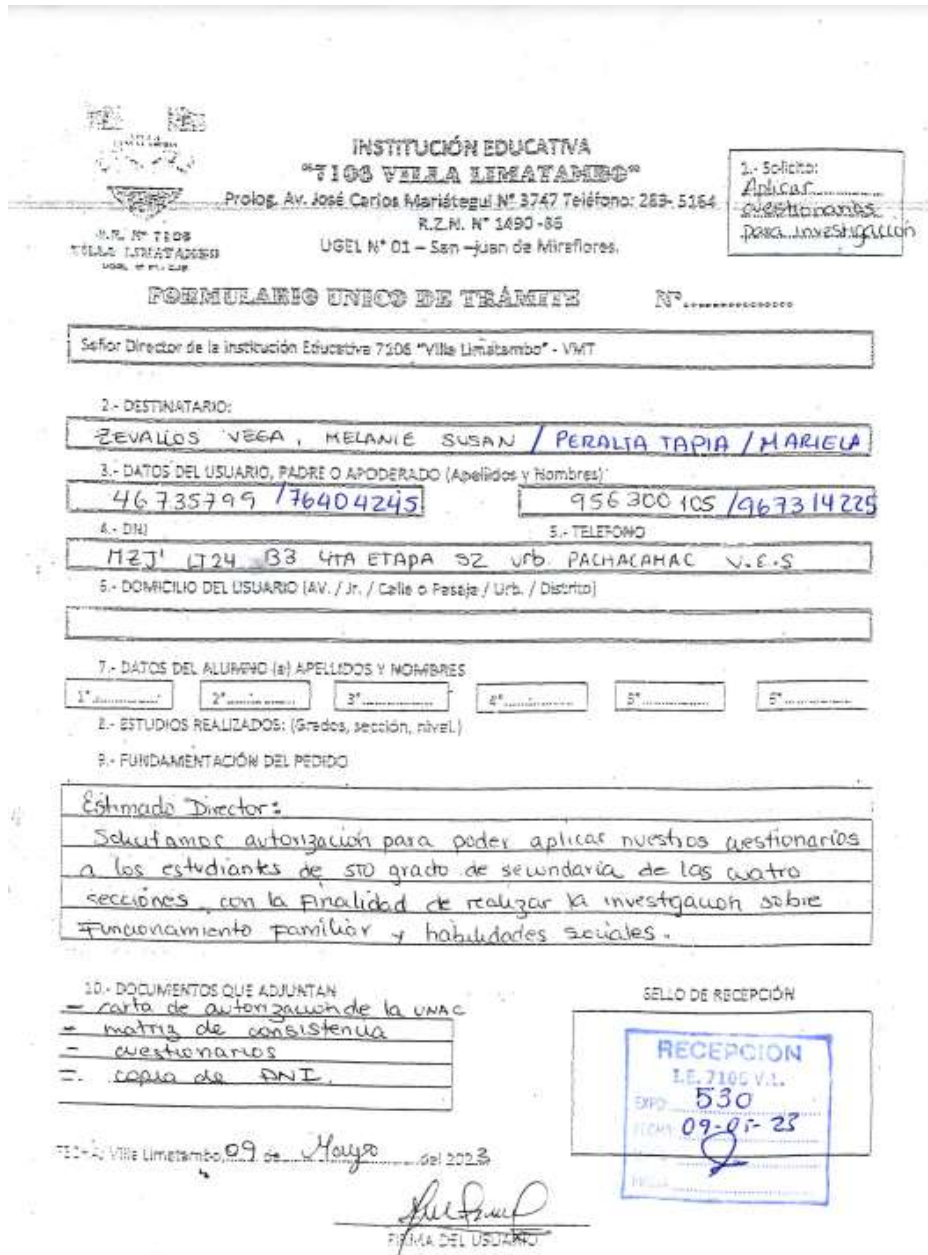 INSTITUCIÓN EDUCATIVA
"7106 VILLA LIMATAMBO"
Prolog. Av. José Carlos Mariátegui N° 3747 Teléfono: 283-5164
R.Z.N. N° 1490-86
UGEL N° 01 – San –juan de Miraflores.
VILLA LIMATAMBO
1.- Solicito:
Aplicar
cuestionarios
para investigación
FORMULARIO UNICO DE TRÁMITE N°...............
Señor Director de la Institución Educativa 7106 "Villa Limatambo" - VMT
2.- DESTINATARIO:
ZEVALLOS VEGA, MELANIE SUSAN / PERALTA TAPIA / MARIELA
3.- DATOS DEL USUARIO, PADRE O APODERADO (Apellidos y Nombres)
46735799 /76404245 956300105 /967314225
4.- DNI 5.- TELEFONO
MZJ' LT24 B3 4TA ETAPA SZ Urb. PACHACAMAC V.E.S
6.- DOMICILIO DEL USUARIO (AV. / Jr. / Calle o Pasaje / Urb. / Distrito)
7.- DATOS DEL ALUMNO (a) APELLIDOS Y NOMBRES
1°............... 2°............... 3°............... 4°............... 5°............... 6°...............
8.- ESTUDIOS REALIZADOS: (Grados, sección, nivel.)
9.- FUNDAMENTACIÓN DEL PEDIDO
Estimado Director:
Solicitamos autorización para poder aplicar nuestros cuestionarios
a los estudiantes de 5TO grado de secundaria de las cuatro
secciónes, con la finalidad de realizar la investgación sobre
Funcionamiento familiar y habilidades sociales.
10.- DOCUMENTOS QUE ADJUNTAN
- carta de autorización de la UNAC
- matriz de consistencia
- cuestionarios
- copia de DNI.
SELLO DE RECEPCIÓN
RECEPCION
I.E. 7106 V.L.
EXPD. 530
FECHA 09-05-23
FECHA: Villa Limatambo, 09 de Mayo del 2023
FIRMA DEL USUARIO